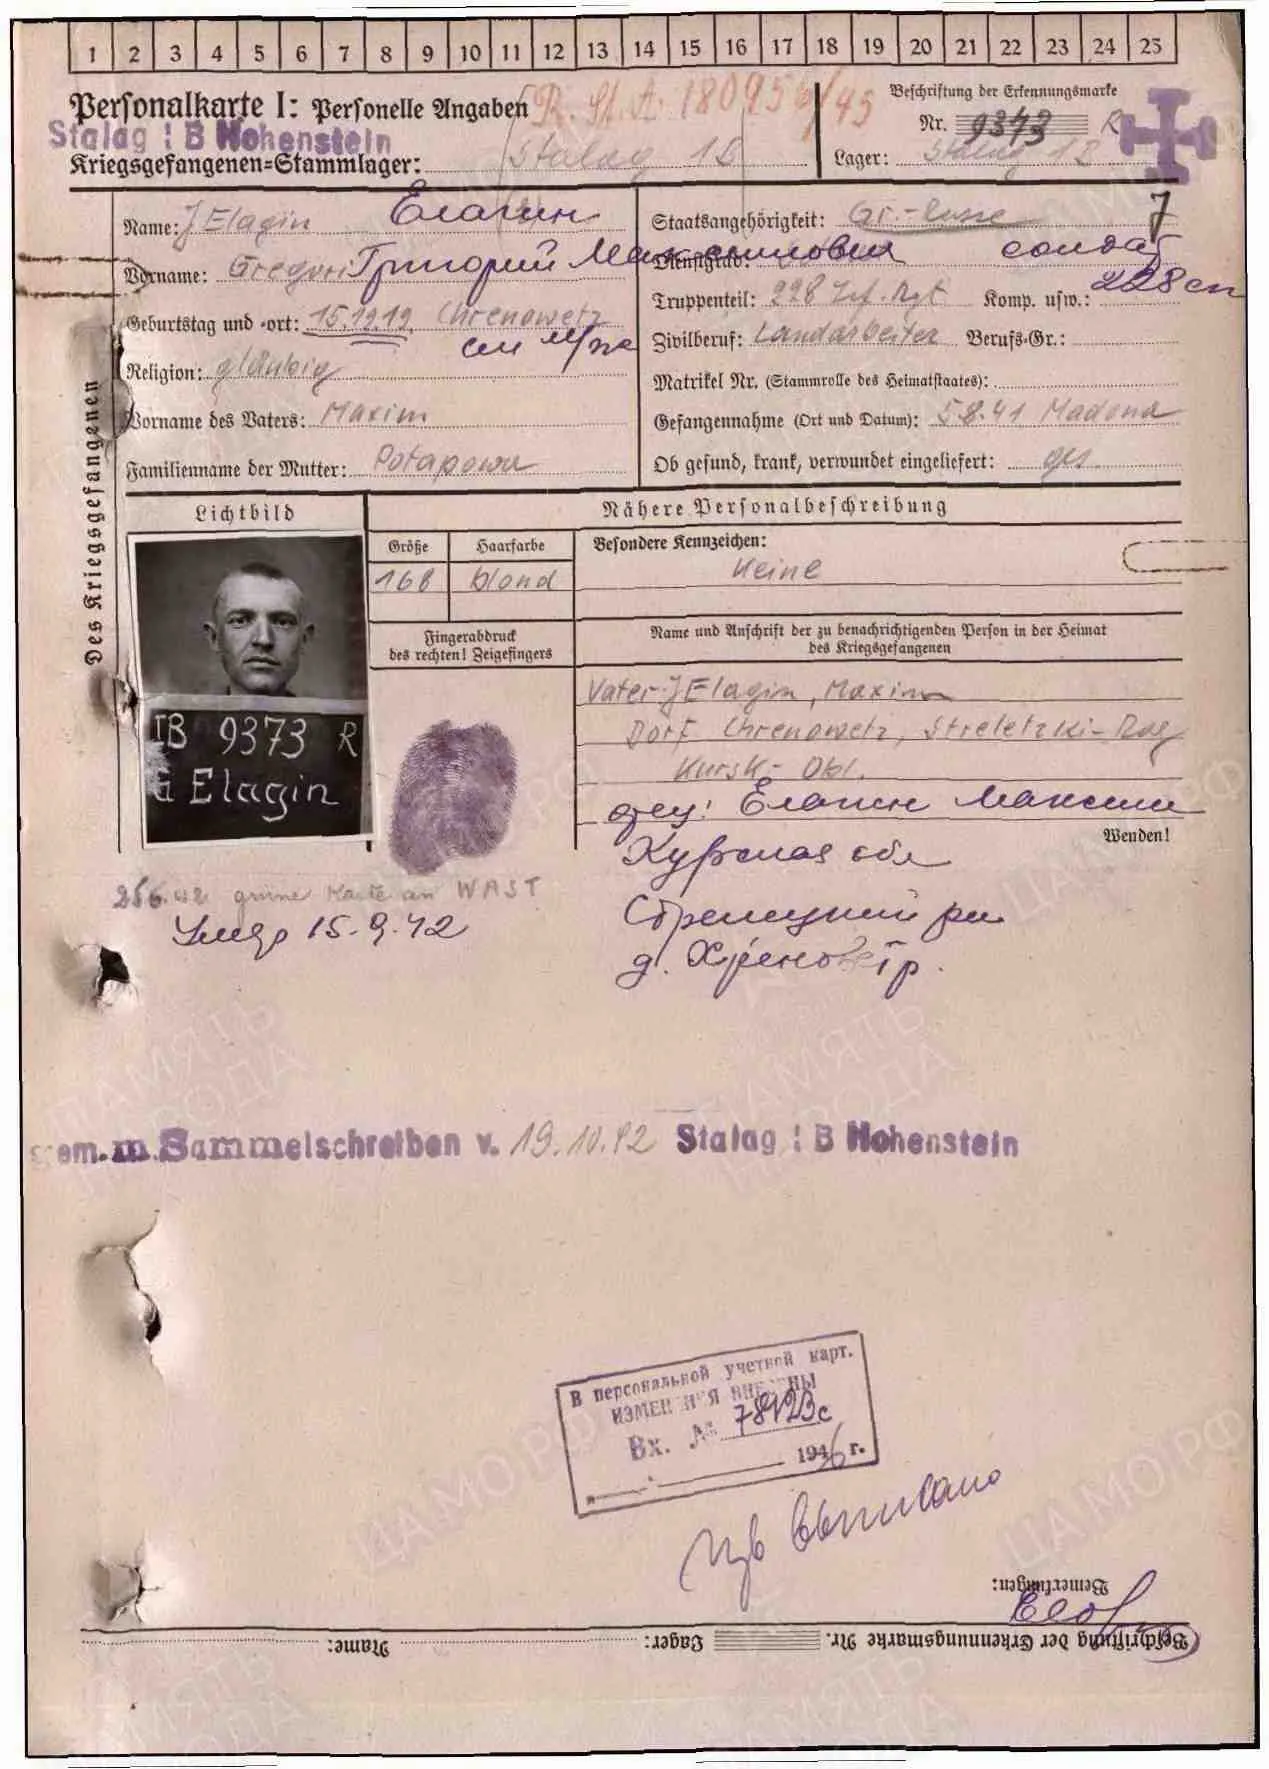 1 2 3 4 5 6 7 8 9 10 11 12 13 14 15 16 17 18 19 20 21 22 23 24 25
Personalkarte I: Personelle Angaben
R. St. A. 180956/45
Beschriftung der Erkennungsmarke
Nr. 9373 R
Stalag I B Hohenstein
Kriegsgefangenen-Stammlager: Stalag 1B
Lager: Stalag 1B
7
Des Kriegsgefangenen
Name: JElagin Елагин
Staatsangehörigkeit: Gr.-Russe
Vorname: Gregori Григорий Максимович
Dienstgrad: солдат
Geburtstag und -ort: 15.12.12 Chrenowetz
Truppenteil: 228 Inf. Rgt Komp. usw.: 228 сп
Religion: gläubig
Zivilberuf: Landarbeiter Berufs-Gr.:
Matrikel Nr. (Stammrolle des Heimatstaates):
Vorname des Vaters: Maxim
Gefangennahme (Ort und Datum): 5.8.41 Madona
Familienname der Mutter: Potapowa
Ob gesund, krank, verwundet eingeliefert: ges.
Lichtbild
Nähere Personalbeschreibung
Größe Haarfarbe
Besondere Kennzeichen:
168 blond
Keine
Fingerabdruck
des rechten! Zeigefingers
Name und Anschrift der zu benachrichtigenden Person in der Heimat
des Kriegsgefangenen
IB 9373 R
G Elagin
Vater JElagin, Maxim
Dorf Chrenowetz, Streletzki-Ray
Kursk-Obl.
отец: Елагин Максим
Wenden!
Курская обл
Стрелецкий рн
д. Хреноветр.
25.6.42 grüne Karte an WAST
Умер 15.9.42
gem. m. Sammelschreiben v. 19.10.42 Stalag I B Hohenstein
В персональной учетной карт.
ИЗМЕНЕНИЯ ВНЕСЕНЫ
Вх. № 78123с
1946 г.
Изв выписано
Bemerkungen:
Beschriftung der Erkennungsmarke Nr. Lager: Name:
ЦАМО РФ
ПАМЯТЬ НАРОДА